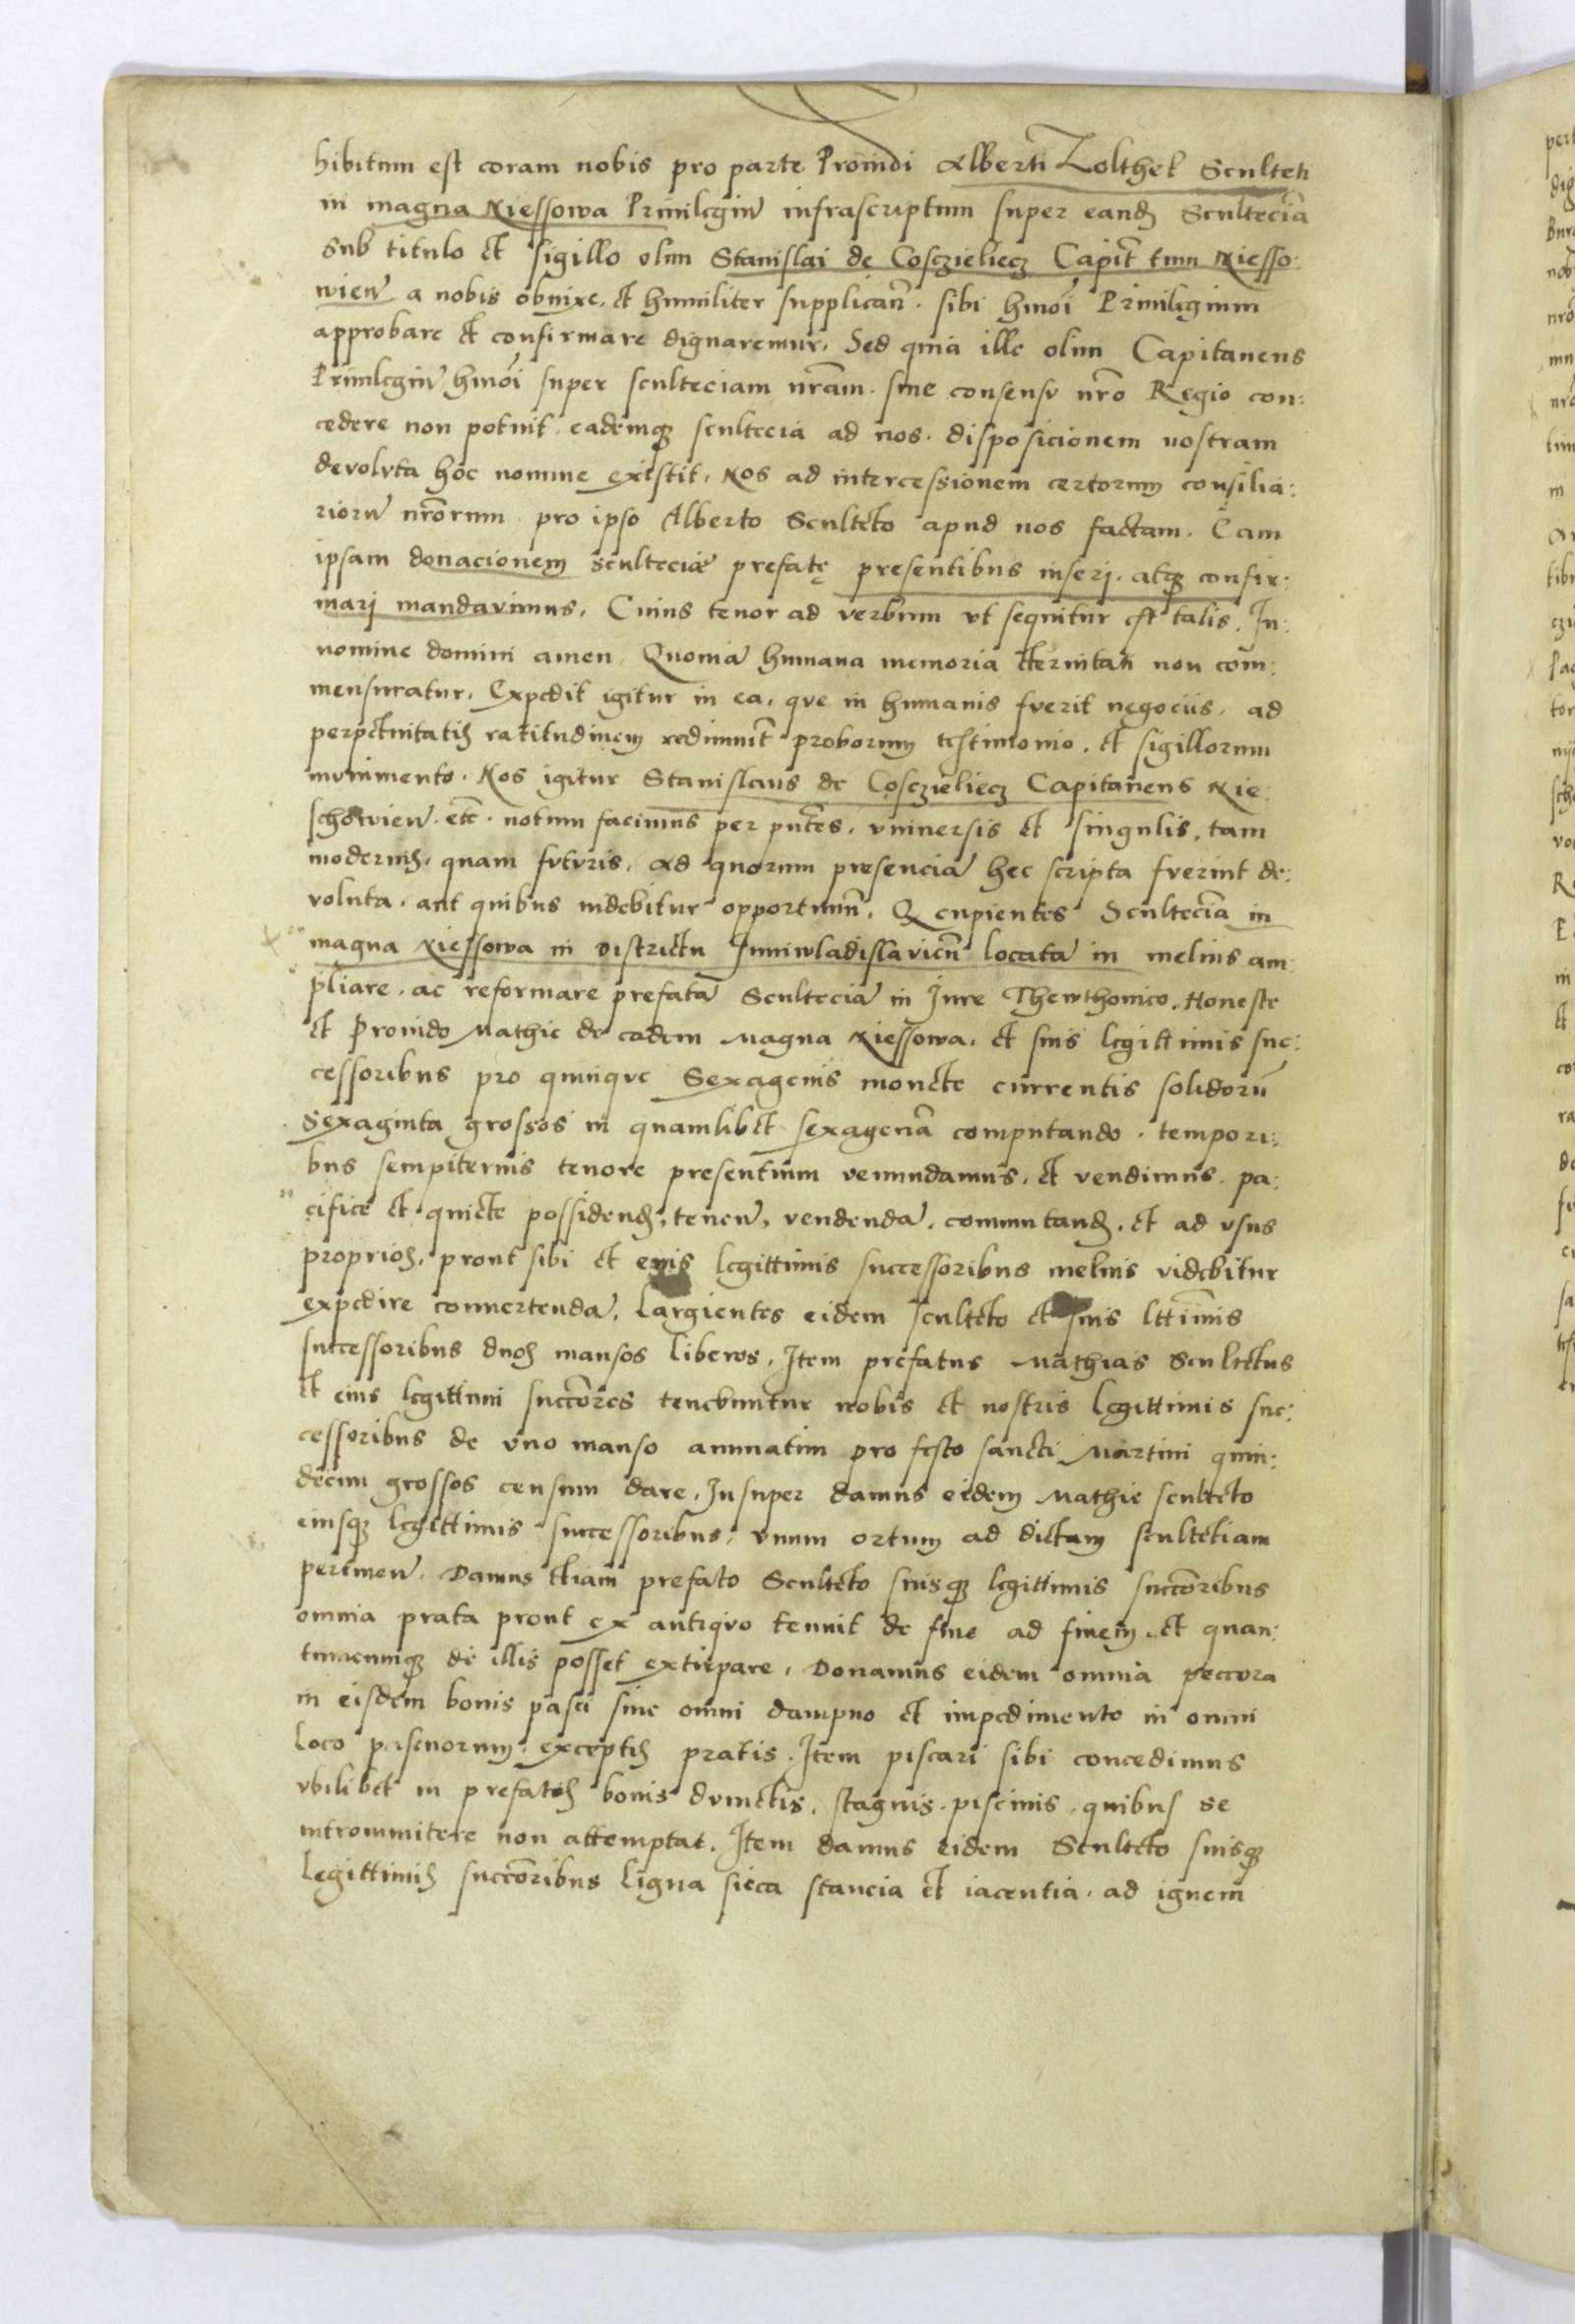 hibitum est coram nobis pro parte Prouidi Alberti Zolthek Sculteti
in magna Niessowa Priuilegiũ infrascriptum super eand Sculteciã
sub titulo et sigillo olim Stanislai de Cosczieliecz Capit̃ tum Niesso:
wieñ a nobis obnixe, et humiliter supplicañ. sibi hmõi Priuilegium
approbare et confirmare dignaremur, Sed quia ille olim Capitaneus
Priuilegiũ hmõi super scultecіam nr̃am. sine consensu nr̃o Regio con:
cedere non potuit, eademq scultecia ad nos. disposicionem nostram
devolvta hoc nomine existit, Nos ad intercessionem certorum consilia:
riorũ nr̃orum pro ipso Alberto Sculteto apud nos factam. Eam
ipsam donacionem sculteciæ prefatę presentibus inserj. atq confir:
marj mandavimus, Cuius tenor ad verbum vt sequitur est talis. In:
nomine domini amen, Quoniã humana memoria eternitati non com:
mensuratur, Expedit igitur in ea, que in humanis fverit negociis, ad
perpetuitatis ratitudinem redimunt̃ proborum testimonio, et sigillorum
mvnimento. Nos igitur Stanislaus de Cosczieliecz Capitaneus Nie:
schowieñ. etc̃. notum facimus per pñtes, vniuersis et singulis, tam
modernis, quam fvtvris, Ad quorum presenciã hec scripta fverint de:
voluta, aut quibus videbitur opportunũ, Q cupientes Sculteciã in
magna Niessowa in districtu Junivladislavieñ locatã in melius am:
pliare, ac reformare prefatã Sculteciã in Jure Thewthonico, Honeste
et Prouido Mathie de eadem Magna Niessowa, et suis legittimis suc:
cessoribus pro quinque Sexagenis monete currentis solidorũ
Sexaginta grossos in quamlibet sexagenã computando. tempori:
bus sempiternis tenore presentium venundamus, et vendimus. pa:
cifice et quiete possidend, teneñ, vendendã, commutand, et ad vsus
proprios, prout sibi et eius legittimis successoribus melius videbitur
expedire conuertendã, Largientes eidem sculteto et suis ltt̃imis
successoribus duos mansos liberos, Item prefatus Mathias Scultetus
et eius legittimi succõres tenebuntur nobis et nostris legittimis suc:
cessoribus de vno manso annuatim pro festo sancti Martini quin:
decim grossos censum dare, Insuper damus eidem Mathie sculteto
eiusq legittimis successoribus, vnum ortum ad dictam scultetiam
pertineñ. Damus etiam prefato Sculteto suisq legittimis succõribus
omnia prata prout ex antiqvo tenuit de fine ad finem, et quan:
tumcumq de illis posset extirpare, Donamus eidem omnia peccora
in eisdem bonis pasci sine omni dampno et impedimento in omni
loco pascuorum, exceptis pratis. Item piscari sibi concedimus
vbilibet in prefatis bonis dvmetis, stagnis. piscinis, quibus se
intrommitere non attemptat. Item damus eidem Sculteto suisq
legittimis succõribus ligna sicca stancia et iacentia, ad ignem